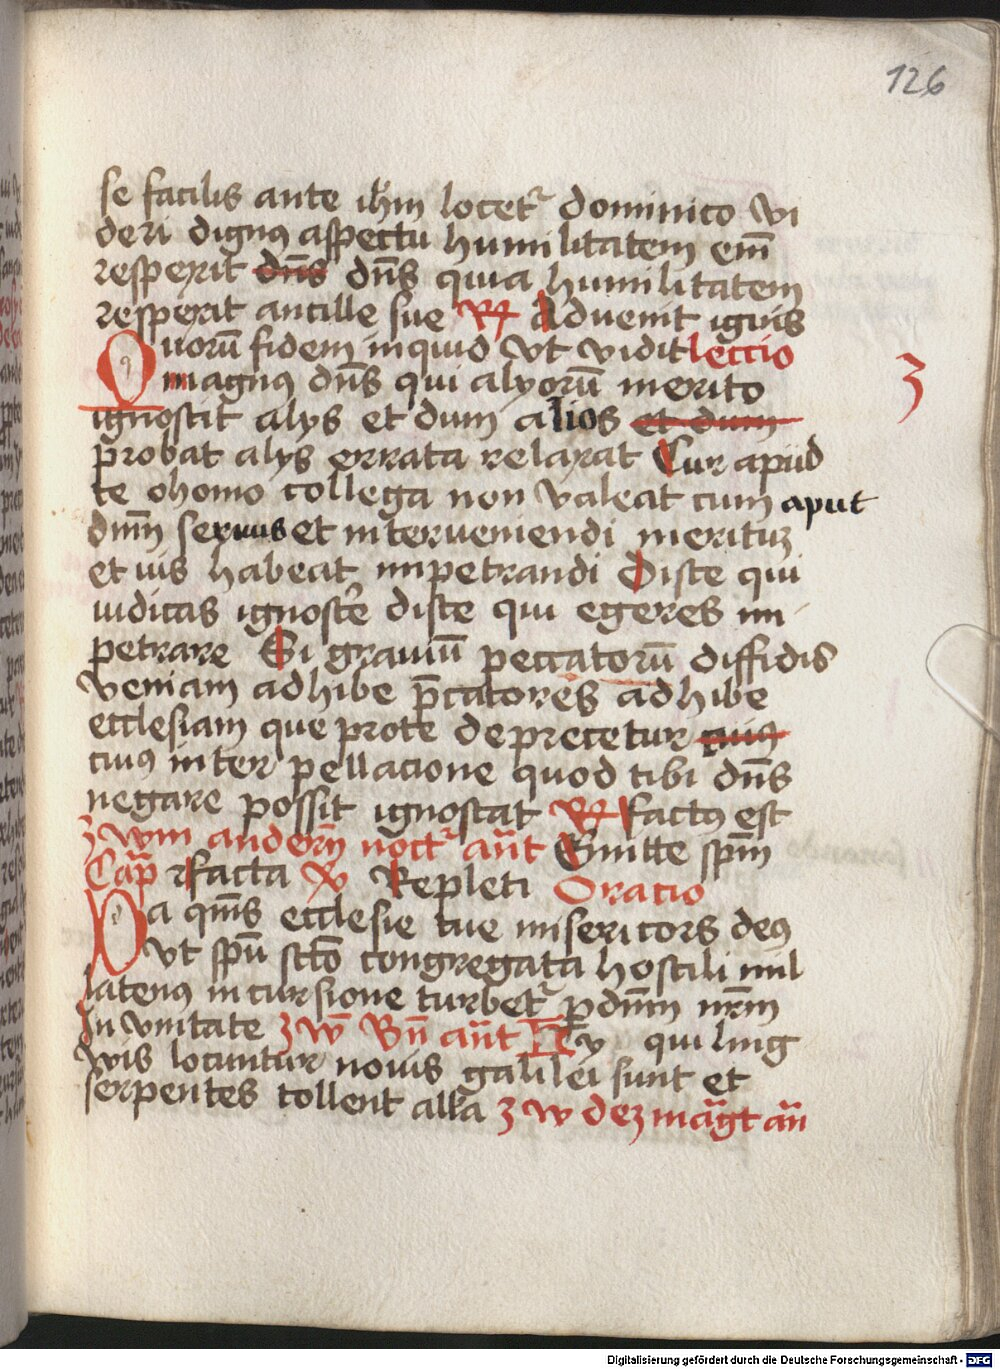 126
se facilis ante ihm̄ locet᷑ dominico vi
deri dignꝯ aspectu humilitatem em̄
respexit dn̄s dn̄s quia humilitatem
respexit ancille sue R Advenit ignis
Quorū fidem inquid vt vidit lectio
magnꝯ dn̄s qui alyorū merito 3
ignoscit alys et dum alios et dum
probat alys errata relaxat Cur apud
te o homo collega non valeat cum aput
dnm̄ servus et interveniendi meritū
et ius habeat impetrandi Disce qui
iudicas ignosce᷑ disce qui egeres im
petrare Si graviū peccatorū diffidis
veniam adhibe p̄catores adhibe
ecclesiam que pro te deprecetur cuiꝯ
cuiꝯ inter pellacione quod tibi dn̄s
negare possit ignoscat R factꝯ est
Zwm andern̄ noct᷑ an̄t Emitte spm̄
Cap̄ facta V Repleti Oratio
Da qm̄s ecclesie tue misericors deꝯ
vt spū sctō congregata hostili nul
latenꝯ incursione turbet᷑ p dnm̄ nr̄m
In vnitate Zw̄ Bn̄ an̄t Hy qui ling
wis locuntur novis galilei sunt et
serpentes tollent all'a Zw dez mag̅t an̄
Digitalisierung gefördert durch die Deutsche Forschungsgemeinschaft - DFG